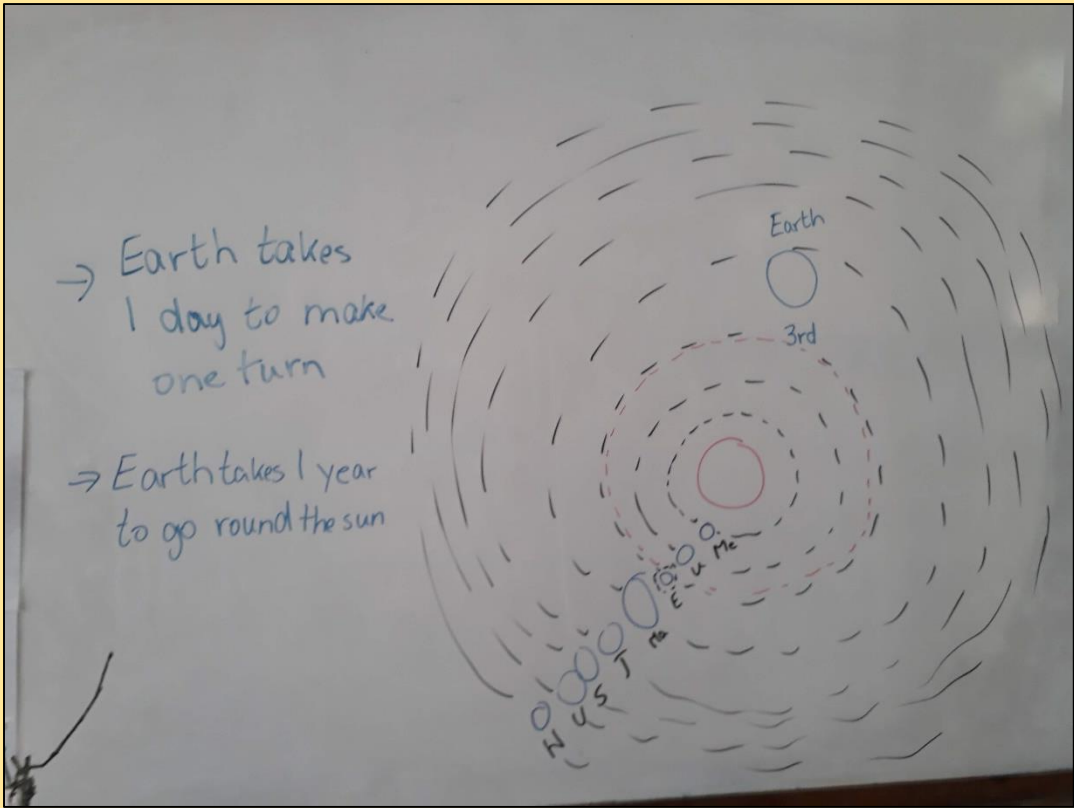 → Earth takes
1 day to make
one turn
→ Earth takes 1 year
to go round the sun
Earth
3rd
Me
V
E
Ma
J
S
U
N